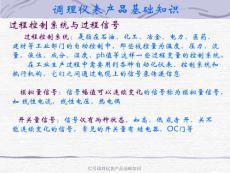 调理仪表产品基础知识
过程控制系统与过程信号
过程控制系统：是指在石油、化工、冶金、电力、医药、
建材等工业部门的自动控制中，那些被控量为温度、压力、流
量、液位、成份、湿度、pH值等这样一些过程变量的控制系统。
在工业生产过程中需要用到各种自动化仪表、控制系统和
执行机构，它们之间通过电缆上的信号来传递信息
模拟量信号：信号幅值可以连续变化的信号称为模拟信号，如
如 线性电流、线性电压、热电偶
开关量信号：信号仅有两种状态，如高、低或者开、关不
能连续变化的信号，常见的开关量有继电器、OC门等
信号调理仪表产品基础知识